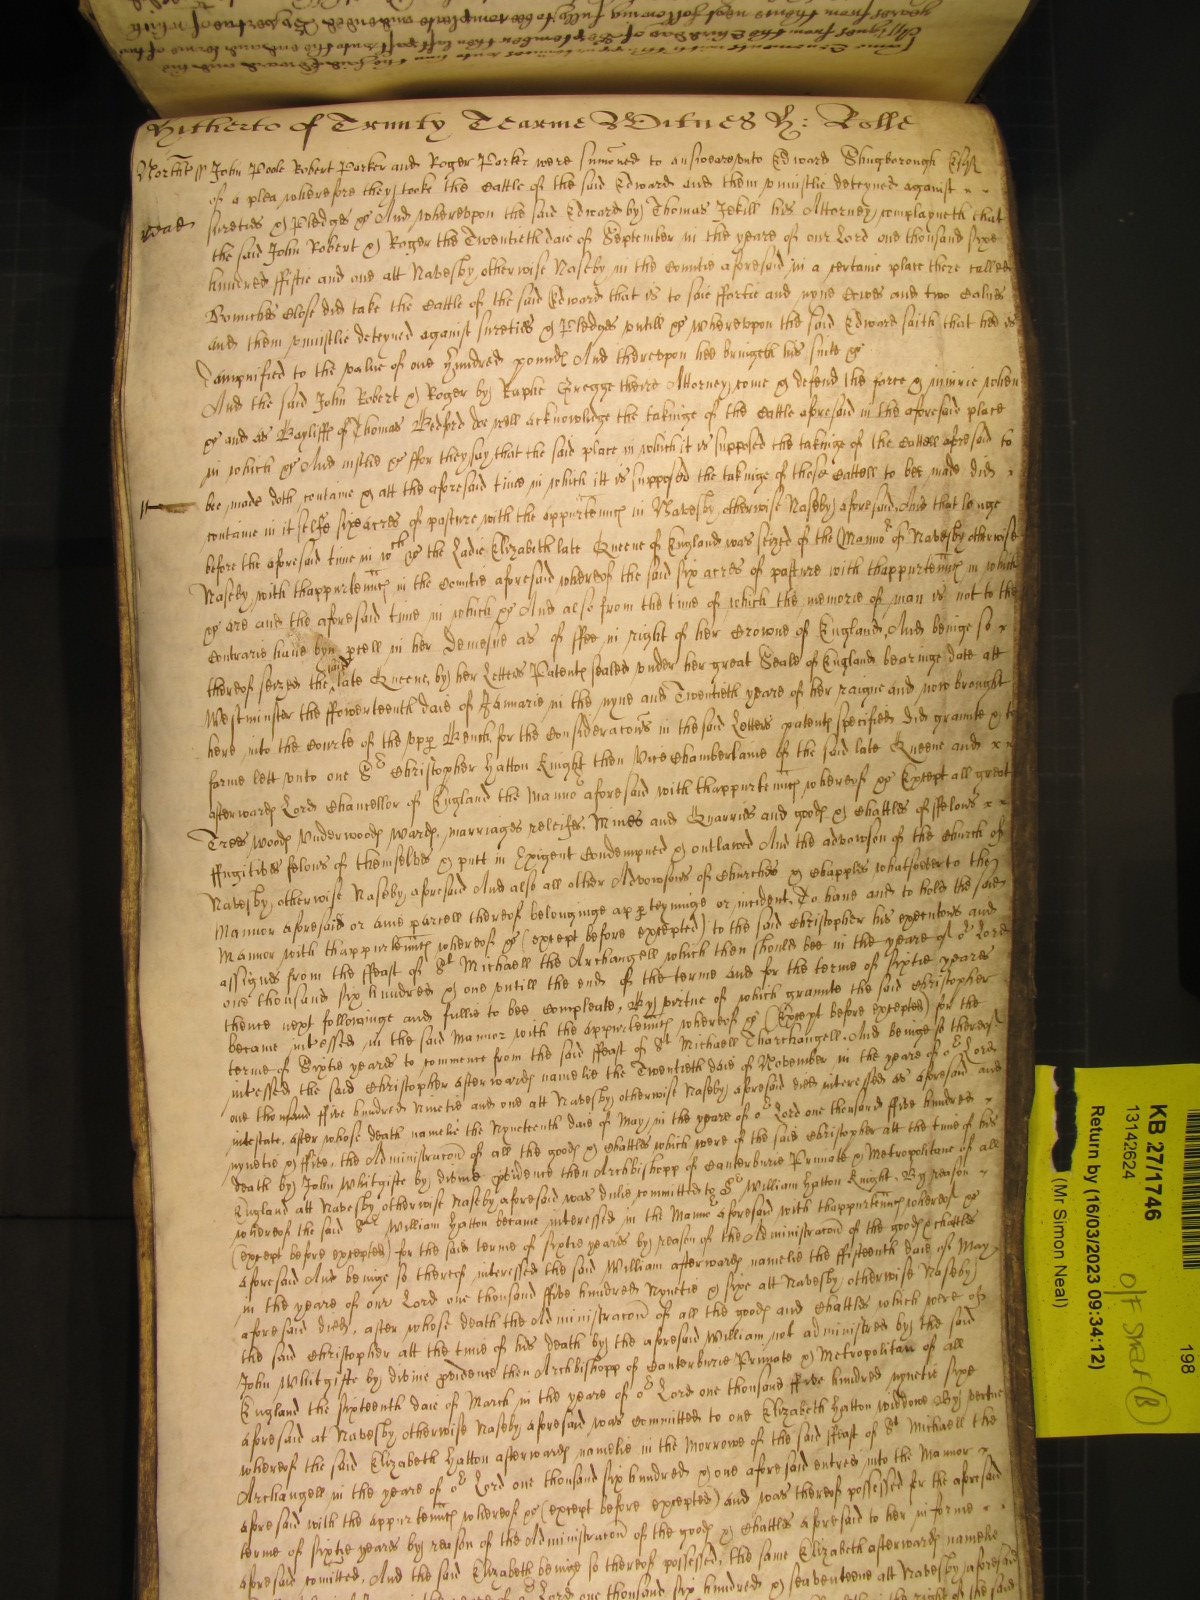 Hitherto of Trinity Tearme Witnes H: Rolle
John Poole Robert Parker and Roger Porter were sumoned to answeare unto Edward Shugborough Esqr
of a plea wherefore they tooke the Cattle of the said Edward and them uniustlie deteyned against
sureties & Pledges &c And whereupon the said Edward by Thomas Jekill his Attorney complayneth that
the said John Robert & Roger the Twentieth daie of September in the yeare of our Lord one thousand sixe
hundred fiftie and one att Navesby otherwise Naseby in the Countie aforesaid in a certaine place there called
Close did take the Cattle of the said Edward that is to saie fortie and nyne Ewes and two Calves
and them uniustlie deteyned against sureties & Pledges untill &c whereupon the said Edward saith that hee is
dampnified to the value of one hundred pounds And thereupon hee bringeth his suite &c
And the said John Robert & Roger by Raphe Gregge theire Attorney come & defend the force & iniurie when
&c and as Bayliffs of Thomas Bedford doe well acknowledge the takinge of the Cattle aforesaid in the aforesaid place
in which &c And iustlie &c ffor they say that the said place in which it is supposed the takinge of the Cattell aforesaid to
bee made doth containe & att the aforesaid time in which itt is supposed the takinge of those Cattell to bee made did
containe in it selfe sixe acres of pasture with the appurtenncs in Navesby otherwise Naseby aforesaid And that longe
before the aforesaid time in wch &c the Ladie Elizabeth late Queene of England was seized of the Mannor of Navesby otherwise
Naseby with thappurtenncs in the Countie aforesaid whereof the said six acres of pasture with thappurtenncs in which
&c are and the aforesaid time in which &c And also from the time of which the memorie of man is not to the
Contrarie have byn pcell in her Demesne as of ffee in right of her Crowne of England, And beinge so
thereof seized the said late Queene by her Letters Patents sealed under her great Seale of England bearinge date att
Westminster the ffowerteenth daie of Januarie in the nyne and Twentieth yeare of her raigne and now brought
here into the Courte of the upp Bench for the Consideracons in the said Letters patents specified did graunte & to
farme lett unto one Sr Christopher Hatton Knight then Vice Chamberlaine of the said late Queene and
afterwards Lord Chancellor of England the Mannor aforesaid with thappurtenncs whereof &c Except all great
Trees Woods Underwoods Wards, marriages releifes, Mines and Quarries and goods & Chattles of ffelons
ffugitives felons of themselves & putt in Exigent Condempned & outlawed And the advowson of the Church of
Navesby otherwise Naseby aforesaid And also all other Advowsons of Churches & Chapples whatsoever to the
Mannor aforesaid or anie parcell thereof belonginge apperteyninge or incident, To have and to hold the said
Mannor with thappurtenncs whereof &c (except before excepted) to the said Christopher his executors and
assignes from the ffeast of St Michaell the Archangell which then should bee in the yeare of or Lord
one thousand six hundred & one untill the end of the terme and for the terme of sixtie yeares
thence next followinge and fullie to bee compleate, By virtue of which graunte the said Christopher
became intressed in the said Mannor with the appurtenncs whereof &c (Except before excepted) for the
terme of Sixtie yeares to commence from the said ffeast of St Michaell Tharchangell. And beinge so thereof
intressed the said Christopher afterwards namelie the Twentieth daie of November in the yeare of or Lord
one thousand ffive hundred Ninetie and one att Navesby otherwise Naseby aforesaid died interessed as aforesaid and
intestate, after whose death namelie the Nyneteenth daie of May in the yeare of or Lord one thousand ffive hundred
nynetie & ffive, the Administracon of all the goods & Chattles which were of the said Christopher att the time of his
death by John Whitgifte by divine pvidence then Archbishopp of Canterburie Primate & Metropolitane of all
England att Navesby otherwise Naseby aforesaid was dulie committed to Sr William Hatton Knight. By reason
whereof the said Sr William Hatton became interessed in the Mannor aforesaid with thappurtenncs whereof &c
(except before excepted) for the said terme of sixtie yeares by reason of the Administracon of the goods & chattles
aforesaid And beinge so thereof interessed the said William afterwards namelie the ffifteenth daie of May
in the yeare of our Lord one thousand ffive hundred Nynetie & sixe att Navesby otherwise Naseby
aforesaid died, after whose death the Administracon of all the goods and Chattles which were of
the said Christopher att the time of his death by the aforesaid William not administred by the said
John Whitgifte by divine pvidence then Archbishopp of Canterburie Primate & Metropolitan of all
England the sixteenth daie of March in the yeare of or Lord one thousand ffive hundred nynetie sixe
aforesaid at Navesby otherwise Naseby aforesaid was committed to one Elizabeth Hatton widdowe By vertue
whereof the said Elizabeth Hatton afterwards namelie in the Morrowe of the said ffeast of St Michaell the
Archangell in the yeare of or Lord one thousand six hundred & one aforesaid entred into the Mannor
aforesaid with the appurtenncs whereof &c (except before excepted) and was thereof possessed for the aforesaid
terme of sixtie yeares by reason of the Administracon of the goods & Chattles aforesaid to her in forme
aforesaid comitted, And the said Elizabeth beinge so thereof possessed, the same Elizabeth afterwards namelie
Lord one thousand six hundred & seaventeene att Navesby aforesaid
KB 27/1746
13142624
Return by (16/03/2023 09:34:12)
(Mr Simon Neal)
198